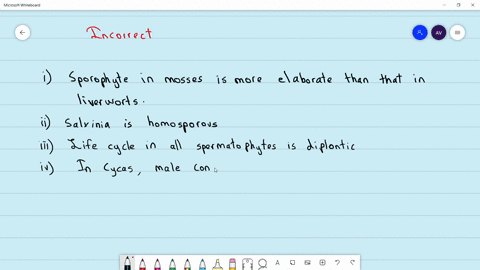 Microsoft Whiteboard
AV
Incorrect
i) Sporophyte in mosses is more elaborate than that in
liverworts.
ii) Salvinia is homosporous
iii) Life cycle in all spermatophytes is diplontic
iv) In Cycas, male con